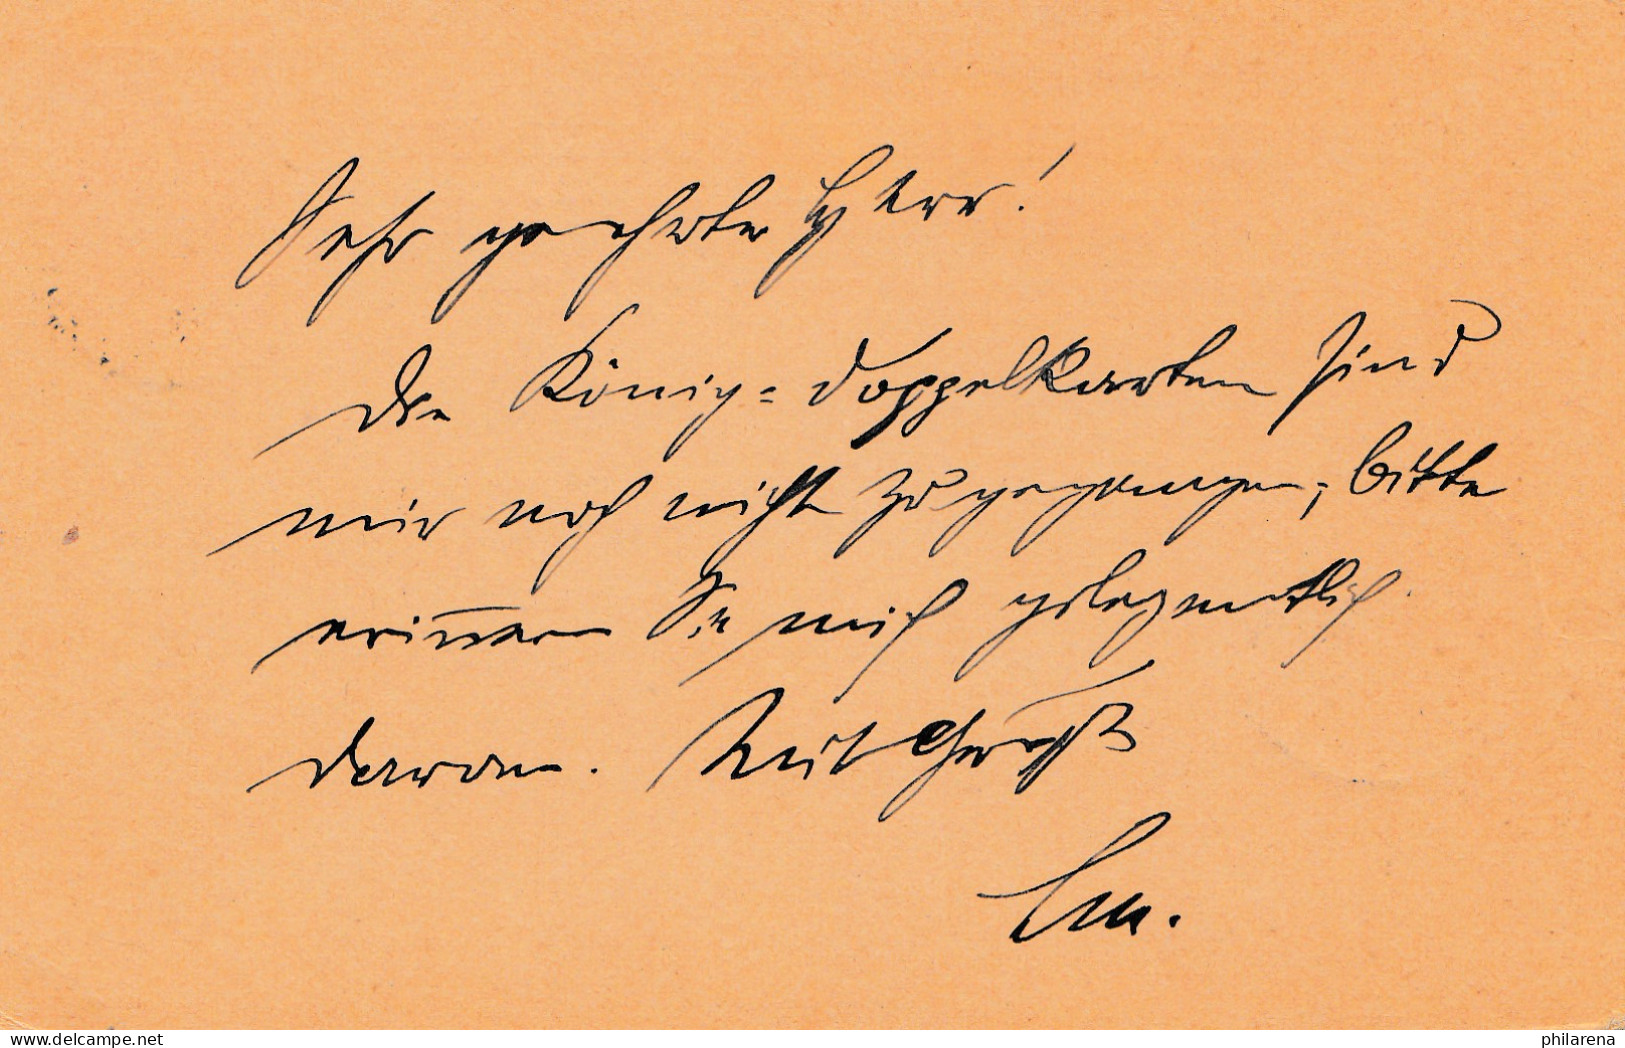 Sehr geehrter Herr!
Die König-Doppelkarten sind
mir noch nicht zugegangen; bitte
erinnern Sie mich gelegentlich
daran. Mit Gruß
www.delcampe.net
philarena